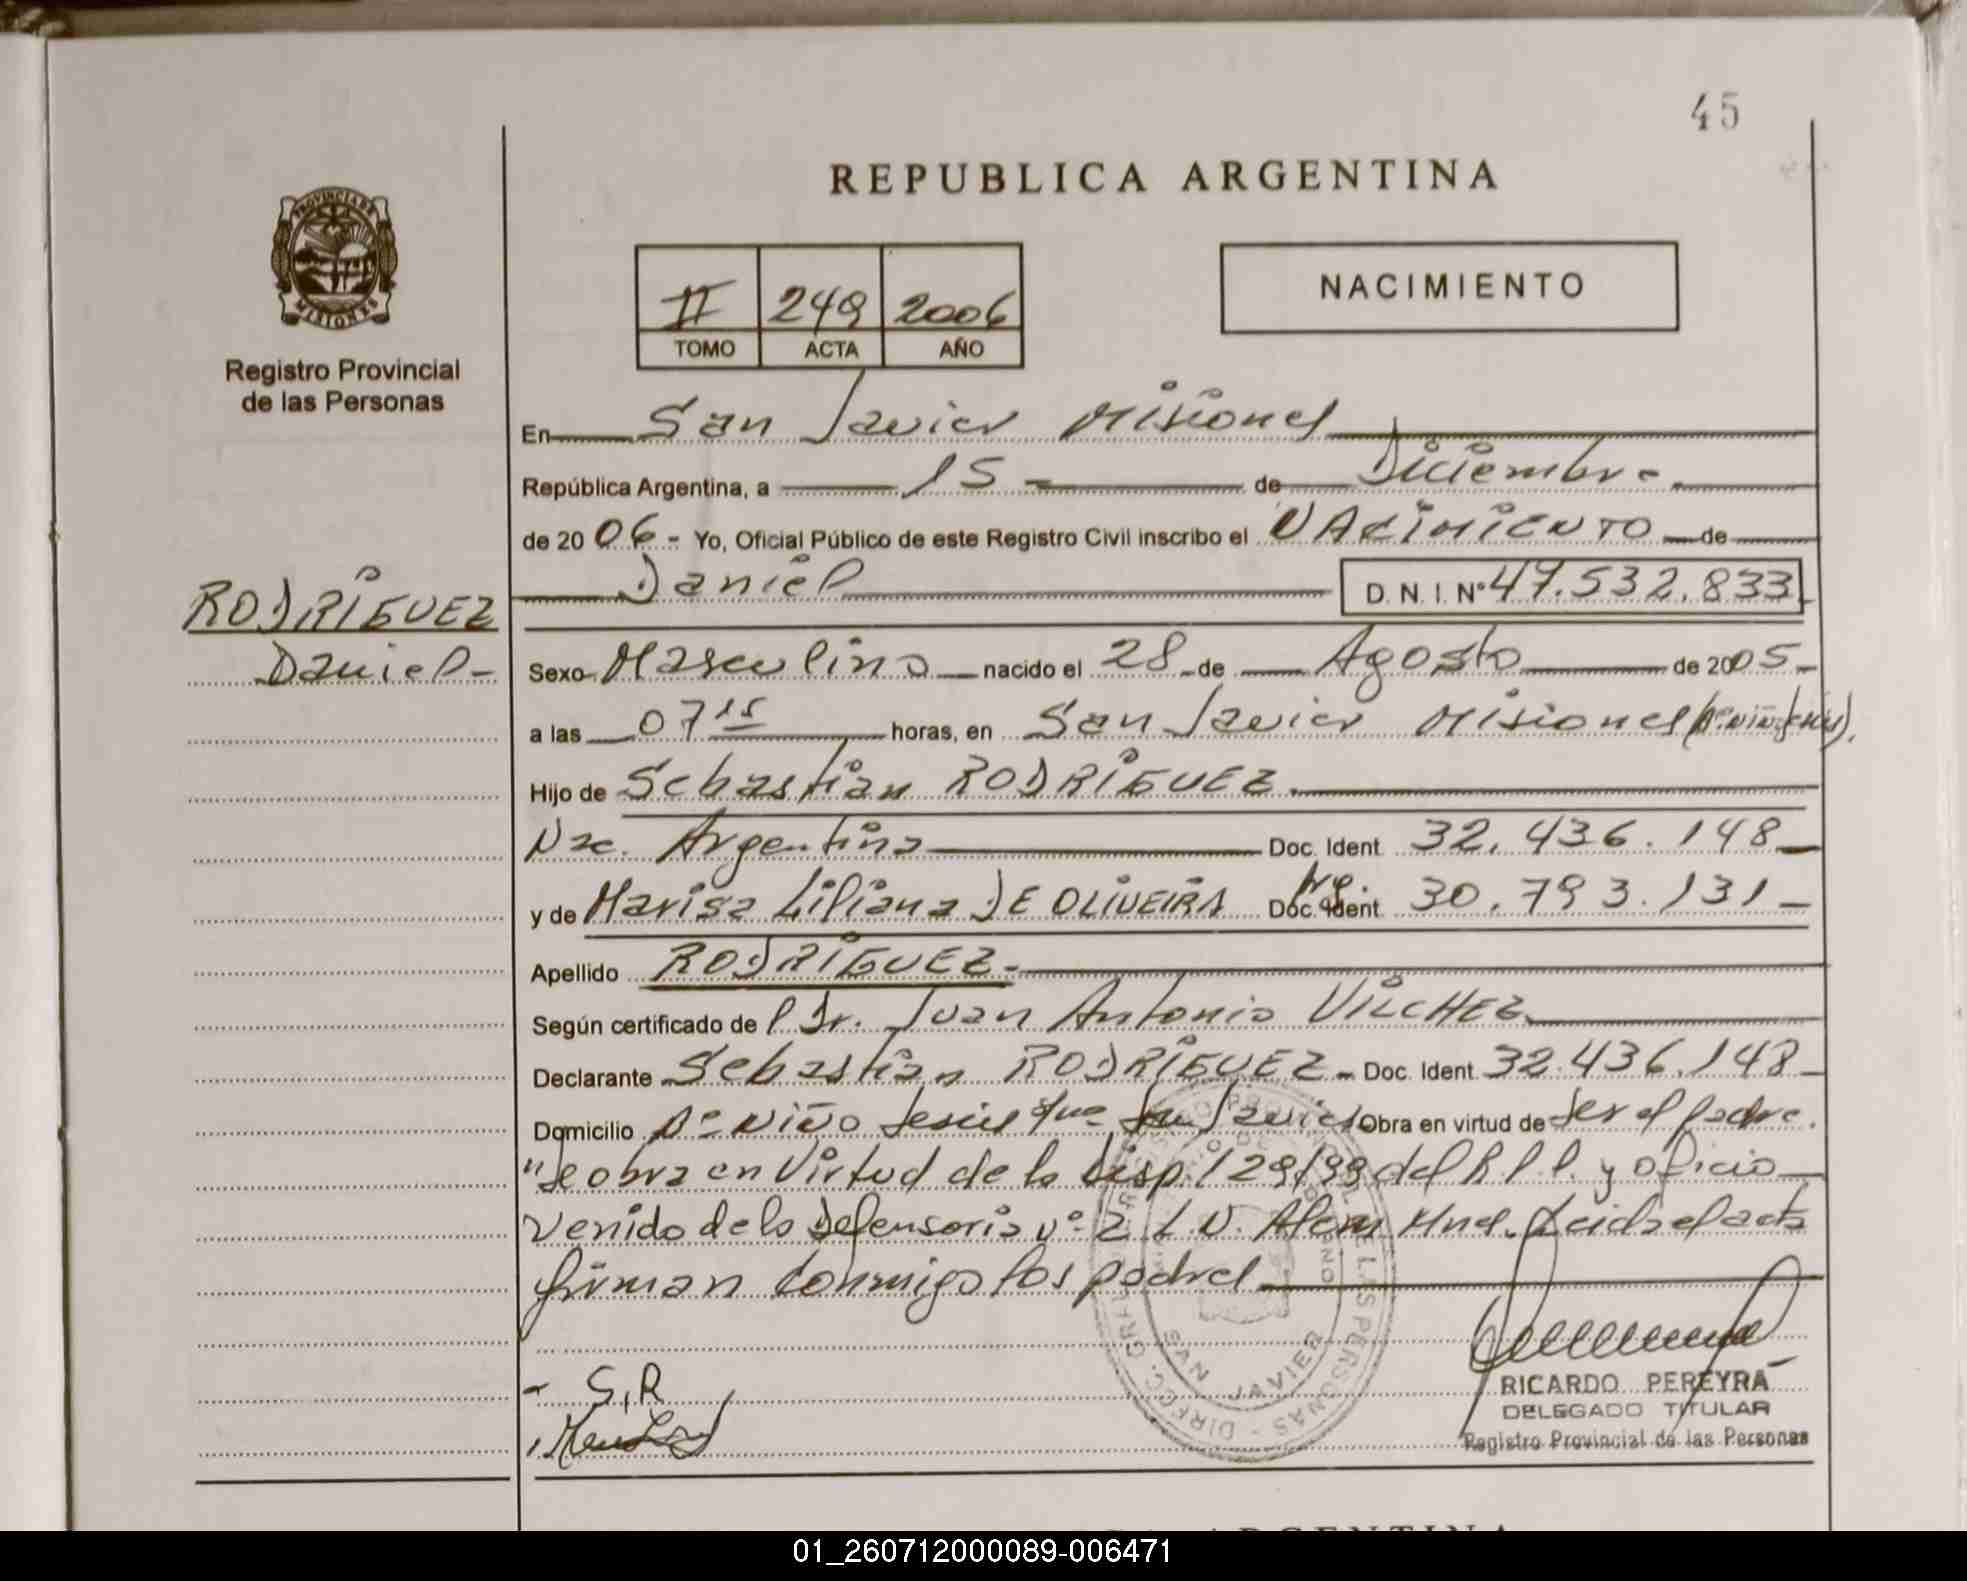 45
REPUBLICA ARGENTINA
PROVINCIA DE
MISIONES
Registro Provincial
de las Personas
II 249 2006
TOMO ACTA AÑO
NACIMIENTO
En San Javier Misiones
República Argentina, a 15 de Diciembre
de 2006- Yo, Oficial Público de este Registro Civil inscribo el NACIMIENTO de
Daniel D.N.I. Nº 47.532.833
RODRIGUEZ
Daniel-
Sexo Masculino nacido el 28 de Agosto de 2005-
a las 07 15 horas, en San Javier Misiones (Bº Niño Jesús).
Hijo de Sebastian RODRIGUEZ
Nac. Argentina Doc. Ident. 32.436.148
y de Marisa Liliana DE OLIVEIRA Arg. Doc. Ident. 30.793.131-
Apellido RODRIGUEZ-
Según certificado del Dr. Juan Antonio VILCHEZ
Declarante Sebastian RODRIGUEZ- Doc. Ident. 32.436.148
Domicilio Bº NIÑO Jesús San Javier Obra en virtud de ser el padre.
"Se obra en Virtud de la Disp. 129/99 del R.P.P. y oficio
venido de la Defensoria nº 2 L.N. Alem Mnes. Leida el acta
firman conmigo los padres
- S,R
DIREC. GRAL. DE LAS PERSONAS
SAN JAVIER
RICARDO PEREYRA
DELEGADO TITULAR
Registro Provincial de las Personas
ARGENTINA
01_260712000089-006471